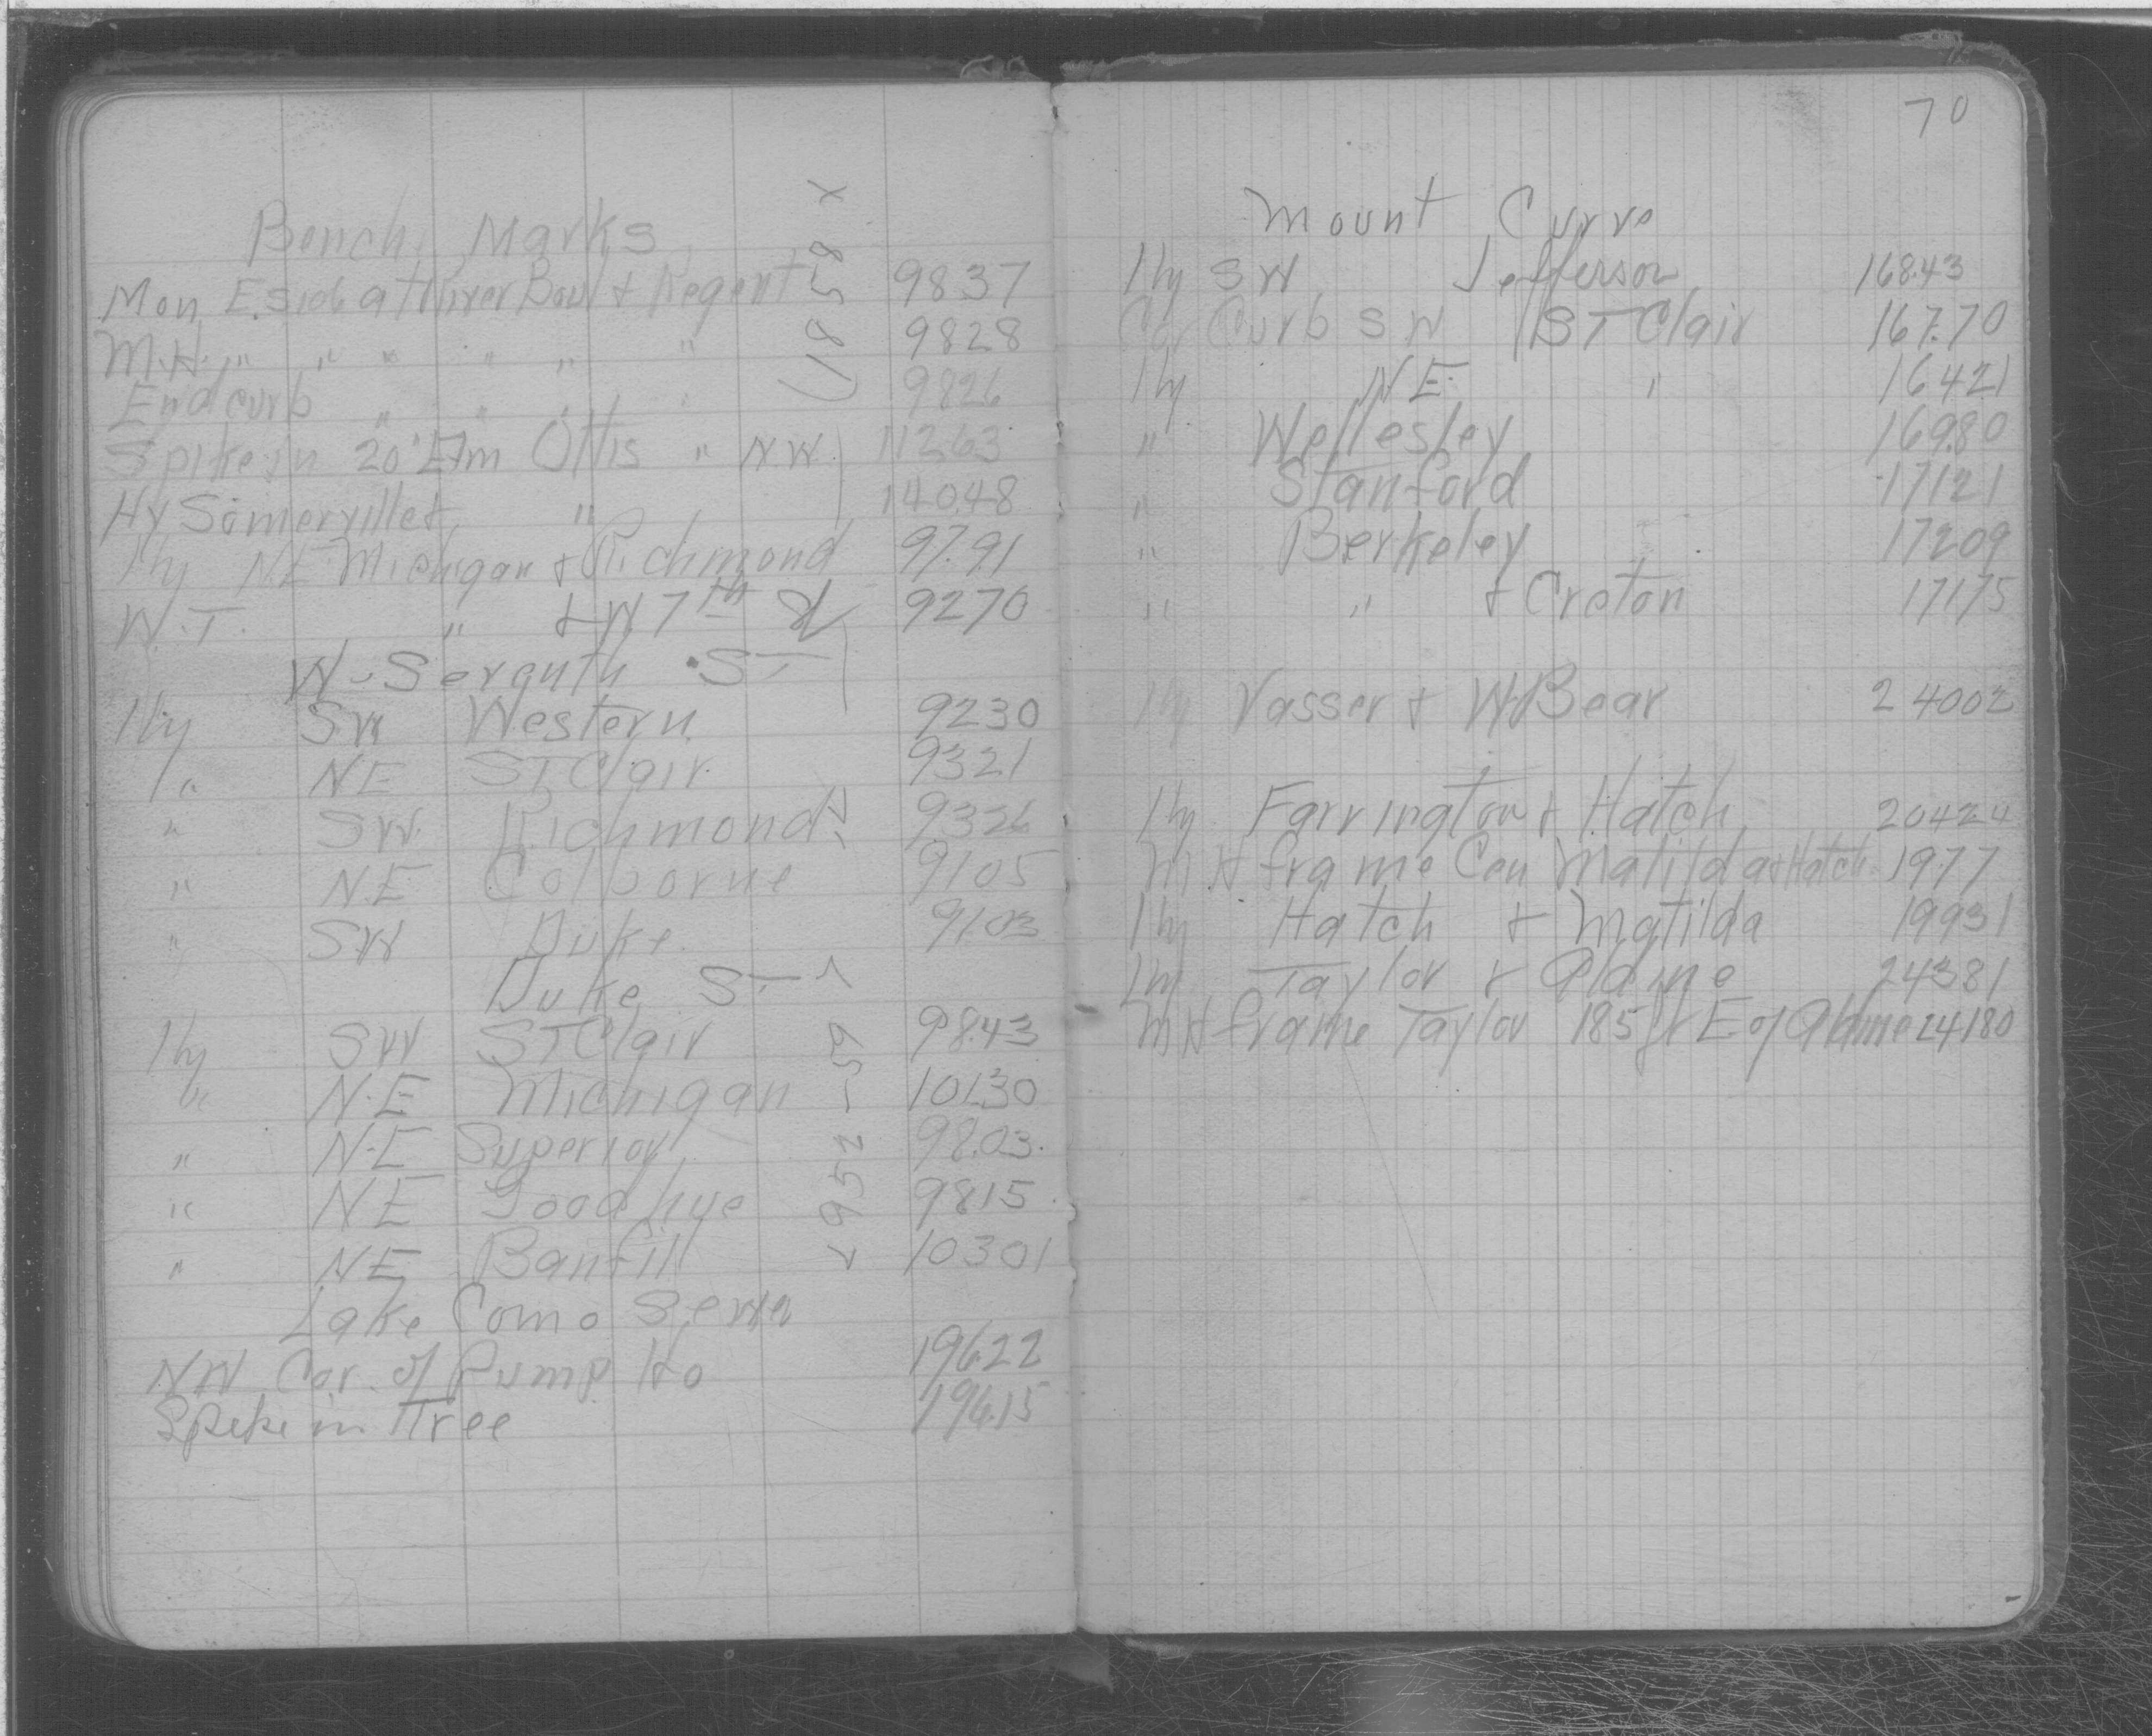 Bench Marks
Mon E. Side at River Boul & Regent 9837
M.H. " " " " " " 9828
End curb " " " " 9826
Spike in 20" Elm Ottis " N.W. 11263
Hy Somerville & " 14048
Hy N.E. Michigan & Richmond 97.91
W.T. " & W 7th St 9270
W. Seventh St
Hy SW Western 9230
" NE St Clair 9321
" SW. Richmond 9326
" N.E Colborne 9105
" SW Duke. 91.03
Duke St
Hy SW St Clair 98.43
" N.E Michigan 101.30
" N.E Superior 98.03.
" NE Goodhue 9815
" NE Banfill 10301
Lake Como Sewer
NW Cor. of Pump Ho 196.22
Spike in Tree 196.15
(1859 x
<9952 - 59
70
Mount Curve
Hy SW Jefferson 168.43
Cor Curb SW St Clair 167.70
Hy N.E. " 16421
" Wellesley 169.80
" Stanford 17121
" Berkeley 17209
" " & Creton 17175
Hy Vasser & W Bear 24002
Hy Farrington & Hatch 20424
M H frame Cen Matilda & Hatch 19777
Hy Hatch & Matilda 19931
Hy Taylor & Aldine 24381
M H frame Taylor 185 ft E. of Aldine 24180